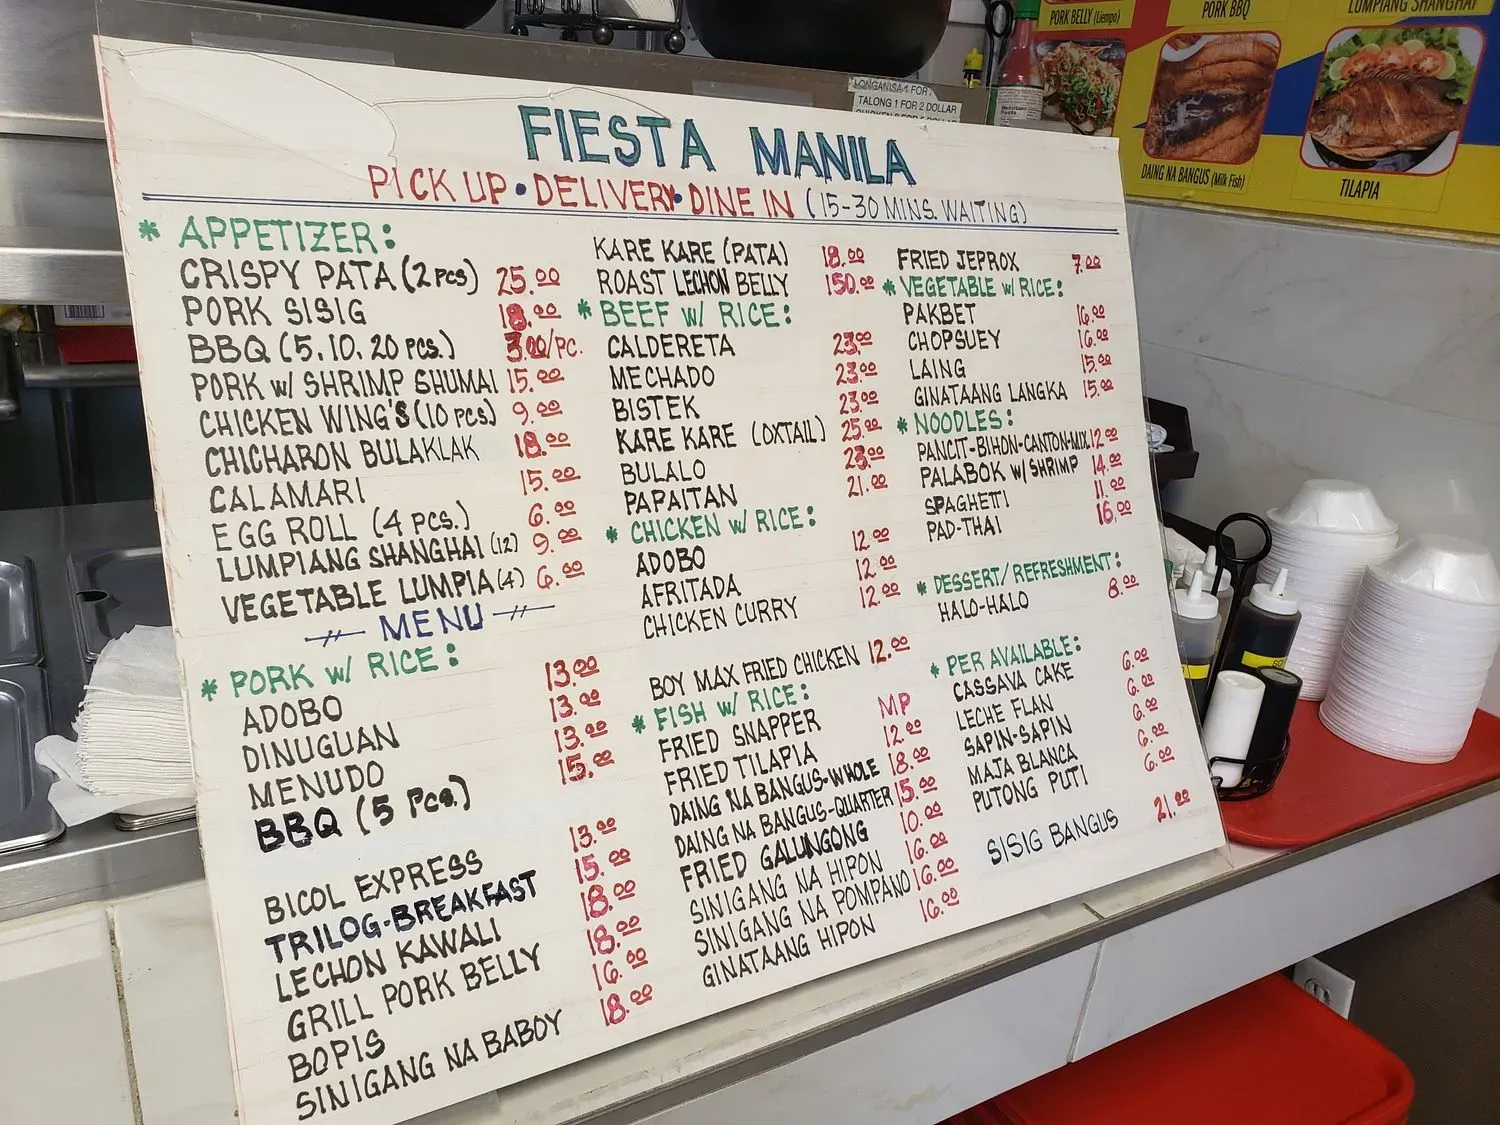 FIESTA MANILA
PICK UP • DELIVERY • DINE IN (15-30 MINS. WAITING)
* APPETIZER:
CRISPY PATA (2 PCS) 25.00
PORK SISIG 18.00
BBQ (5, 10, 20 PCS.) 3.00/PC.
PORK W/ SHRIMP SHUMAI 15.00
CHICKEN WING'S (10 PCS) 9.00
CHICHARON BULAKLAK 18.00
CALAMARI 15.00
EGG ROLL (4 PCS.) 6.00
LUMPIANG SHANGHAI (12) 9.00
VEGETABLE LUMPIA (4) 6.00
MENU
* PORK W/ RICE:
ADOBO 13.00
DINUGUAN 13.00
MENUDO 13.00
BBQ (5 PCS.) 15.00
BICOL EXPRESS 13.00
TRILOG-BREAKFAST 15.00
LECHON KAWALI 18.00
GRILL PORK BELLY 18.00
BOPIS 16.00
SINIGANG NA BABOY 18.00
KARE KARE (PATA) 18.00
ROAST LECHON BELLY 150.00
* BEEF W/ RICE:
CALDERETA 23.00
MECHADO 23.00
BISTEK 23.00
KARE KARE (OXTAIL) 25.00
BULALO 23.00
PAPAITAN 21.00
* CHICKEN W/ RICE:
ADOBO 12.00
AFRITADA 12.00
CHICKEN CURRY 12.00
BOY MAX FRIED CHICKEN 12.00
* FISH W/ RICE:
FRIED SNAPPER MP
FRIED TILAPIA 12.00
DAING NA BANGUS-WHOLE 18.00
DAING NA BANGUS-QUARTER 15.00
FRIED GALUNGONG 10.00
SINIGANG NA HIPON 16.00
SINIGANG NA POMPANO 16.00
GINATAANG HIPON 16.00
FRIED JEPROX 7.00
* VEGETABLE W/ RICE:
PAKBET 16.00
CHOPSUEY 16.00
LAING 15.00
GINATAANG LANGKA 15.00
* NOODLES:
PANCIT-BIHON-CANTON-MIX 12.00
PALABOK W/ SHRIMP 14.00
SPAGHETTI 11.00
PAD-THAI 16.00
* DESSERT/REFRESHMENT:
HALO-HALO 8.00
* PER AVAILABLE:
CASSAVA CAKE 6.00
LECHE FLAN 6.00
SAPIN-SAPIN 6.00
MAJA BLANCA 6.00
PUTONG PUTI 6.00
SISIG BANGUS 21.00
LONGANISA 1 FOR
TALONG 1 FOR 2 DOLLAR
PORK BELLY (Liempo)
PORK BBQ
LUMPIANG SHANGHAI
DAING NA BANGUS (Milk Fish)
TILAPIA